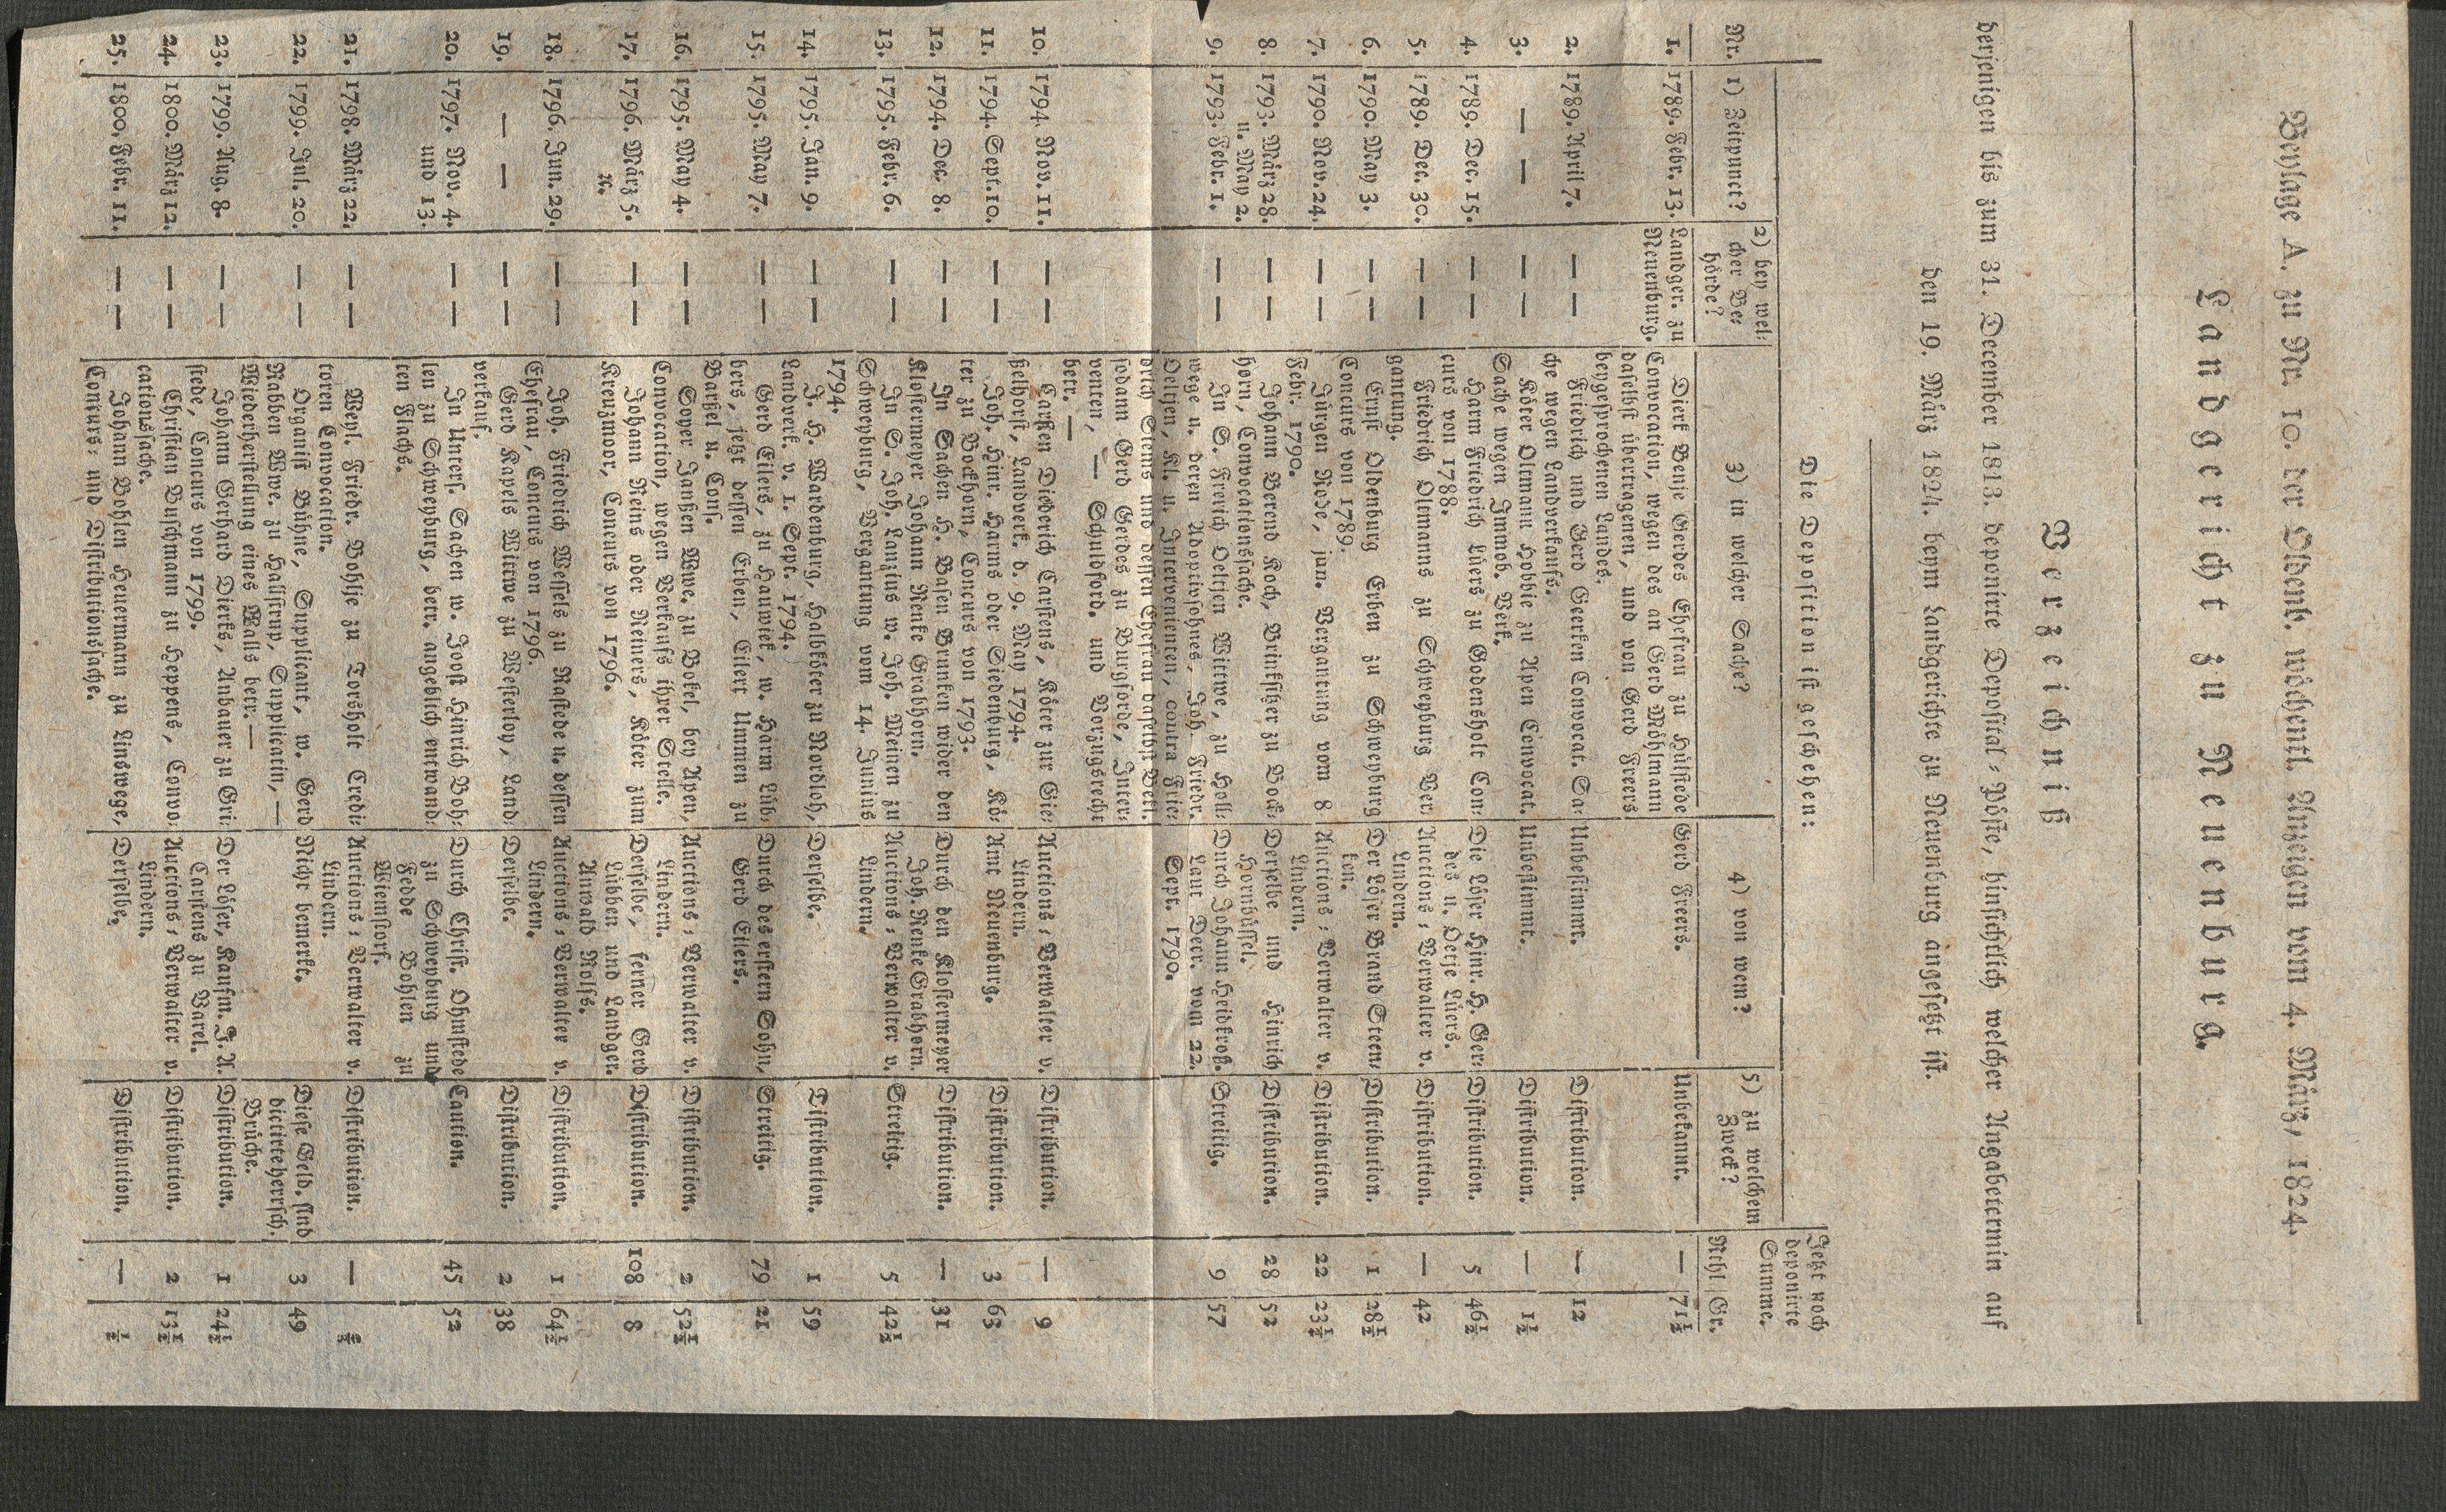 Beylage A. zu Nr. 10. der Oldenb. wöchentl. Anzeigen vom 4. März, 1824.
Landgericht zu Neuenburg.
Verzeichniß
derjenigen bis zum 31. December 1813. deponirte Deposital-Pöste, hinsichtlich welcher Angabetermin auf
den 19. März 1824. beym Landgerichte zu Neuenburg angesetzt ist.
Die Deposition ist geschehen:
Jetzt noch deponirte Summe.
Nr. 1) Zeitpunct? 2) bey wel- cher Be- hörde? 3) in welcher Sache? 4) von wem? 5) zu welchem Zweck? Rthl Gr.
1. 1789. Febr. 13. Landger. zu Dierk Benje Gerdes Ehefrau zu Hülstede Gerd Freers. Unbekannt. — 71½
Neuenburg. Convocation, wegen des an Gerd Möhlmann
daselbst übertragenen, und von Gerd Freers
beygesprochenen Landes.
2. 1789. April 7. — — Friedrich und Gerd Gerken Convocat. Sa- Unbestimmt. Distribution. — 12
che wegen Landverkaufs.
3. — — — — Köter Oltmann Hobbie zu Apen Convocat. Unbestimmt. Distribution. — 1½
Sache wegen Immob. Verk.
4. 1789. Dec. 15. — — Harm Friedrich Lüers zu Godensholt Con- Die Löser Hinr. H. Ger- Distribution. 5 46½
curs von 1788. des u. Detje Lüers.
5. 1789. Dec. 30. — — Friedrich Olemanns zu Schweyburg Ver- Auctions-Verwalter v. Distribution. — 42
gantung. Lindern.
6. 1790. May 3. — — Ernst Oldenburg Erben zu Schweyburg Der Löser Brand Steen- Distribution. 1 28½
Concurs von 1789. ken.
7. 1790. Nov. 24. — — Jürgen Rode, jun. Vergantung vom 8 Auctions-Verwalter v. Distribution. 22 23½
Febr. 1790. Lindern.
8. 1793. März 28. — — Johann Berend Koch, Brinksitzer zu Bock- Derselbe und Hinrich Distribution. 28 52
u. May 2. horn, Convocationssache. Hornbüssel.
9. 1793. Febr. 1. — — In S. Frerich Oeltjen Wittwe, zu Holl- Durch Johann Heidkroß. Streitig. 9 57
wege u. deren Adoptivsohnes, Joh. Friedr. Laut Decr. vom 22.
Oeltjen, Kl. u. Intervenienten, contra Frie- Sept. 1790.
drich Siems und dessen Ehefrau daselbst Bekl.
sodann Gerd Gerdes zu Burgforde, Inter-
venten, — Schuldford. und Vorzugsrecht
betr. —
10. 1794. Nov. 11. — — Carsten Diederich Carstens, Köter zur Gie- Auctions-Verwalter v. Distribution. — 9
ßelhorst, Landverk. d. 9. May 1794. Lindern.
11. 1794. Sept. 10. — — Joh. Hinr. Harms oder Siedenburg, Kö- Amt Neuenburg. Distribution. 3 63
ter zu Bockhorn, Concurs von 1793.
12. 1794. Dec. 8. — — In Sachen H. Basen Brunken wider den Durch den Klostermeyer Distribution. — 31
Klostermeyer Johann Renke Grabhorn. Joh. Renke Grabhorn.
13. 1795. Febr. 6. — — In S. Joh. Lanzius w. Joh. Meinen zu Auctions-Verwalter v. Streitig. 5 42½
Schweyburg, Vergantung vom 14 Junius Lindern.
1794.
14. 1795. Jan. 9. — — J. H. Wardenburg, Halbköter zu Nordloh, Derselbe. Distribution. 1 59
Landverk. v. 1. Sept. 1794.
15. 1795. May 7. — — Gerd Eilers, zu Hauwiek, w. Harm Lüb- Durch des erstern Sohn, Streitig. 79 21
bers, jetzt dessen Erben, Eilert Ummen zu Gerd Eilers.
Barßel u. Cons.
16. 1795. May 4. — — Soyer Janßen Wwe. zu Bokel, bey Apen, Auctions-Verwalter v. Distribution. 2 52½
Convocation, wegen Verkaufs ihrer Stelle. Lindern.
17. 1796. März 5. — — Johann Reins oder Reiners, Köter zum Derselbe, ferner Gerd Distribution. 108 8
rc. Kreuzmoor, Concurs von 1796. Lübben und Landger.
Anwald Rolfs.
18. 1796. Jun. 29. — — Joh. Friedrich Wessels zu Rastede u. dessen Auctions-Verwalter v. Distribution. 1 64½
Ehefrau, Concurs von 1796. Lindern.
19. — — — — Gerd Kapels Wittwe zu Westerloy, Land- Derselbe. Distribution. 2 38
verkauf.
20. 1797. Nov. 4. — — In Unters. Sachen w. Joost Hinrich Boh- Durch Christ. Ohmstede Caution. 45 52
und 13. len zu Schweyburg, betr. angeblich entwand- zu Schweyburg und
ten Flachs. Fedde Bohlen zu
Wiemstorf.
21. 1798. März 22. — — Weyl. Friedr. Bohlje zu Torsholt Credi- Auctions-Verwalter v. Distribution. —
toren Convocation. Lindern.
22. 1799. Jul. 20. — — Organist Bühne, Supplicant, w. Gerd Nicht bemerkt. Diese Geld. sind 3 49
Rabben Wwe. zu Halsstrup, Supplicatin, — dictirte herrsch.
Wiederherstellung eines Walls betr. — Brüche.
23. 1799. Aug. 8. — — Johann Gerhard Dierks, Anbauer zu Gri- Der Löser, Kaufm. J. A. Distribution. 1 24½
stede, Concurs von 1799. Carstens zu Varel.
24. 1800. März 12. — — Christian Buschmann zu Heppens, Convo- Auctions-Verwalter v. Distribution. 2 13½
cationssache. Lindern.
25. 1800. Febr. 11. — — Johann Bohlen Heuermann zu Linswege, Derselbe. Distribution. — ½
Concurs- und Distributionssache.